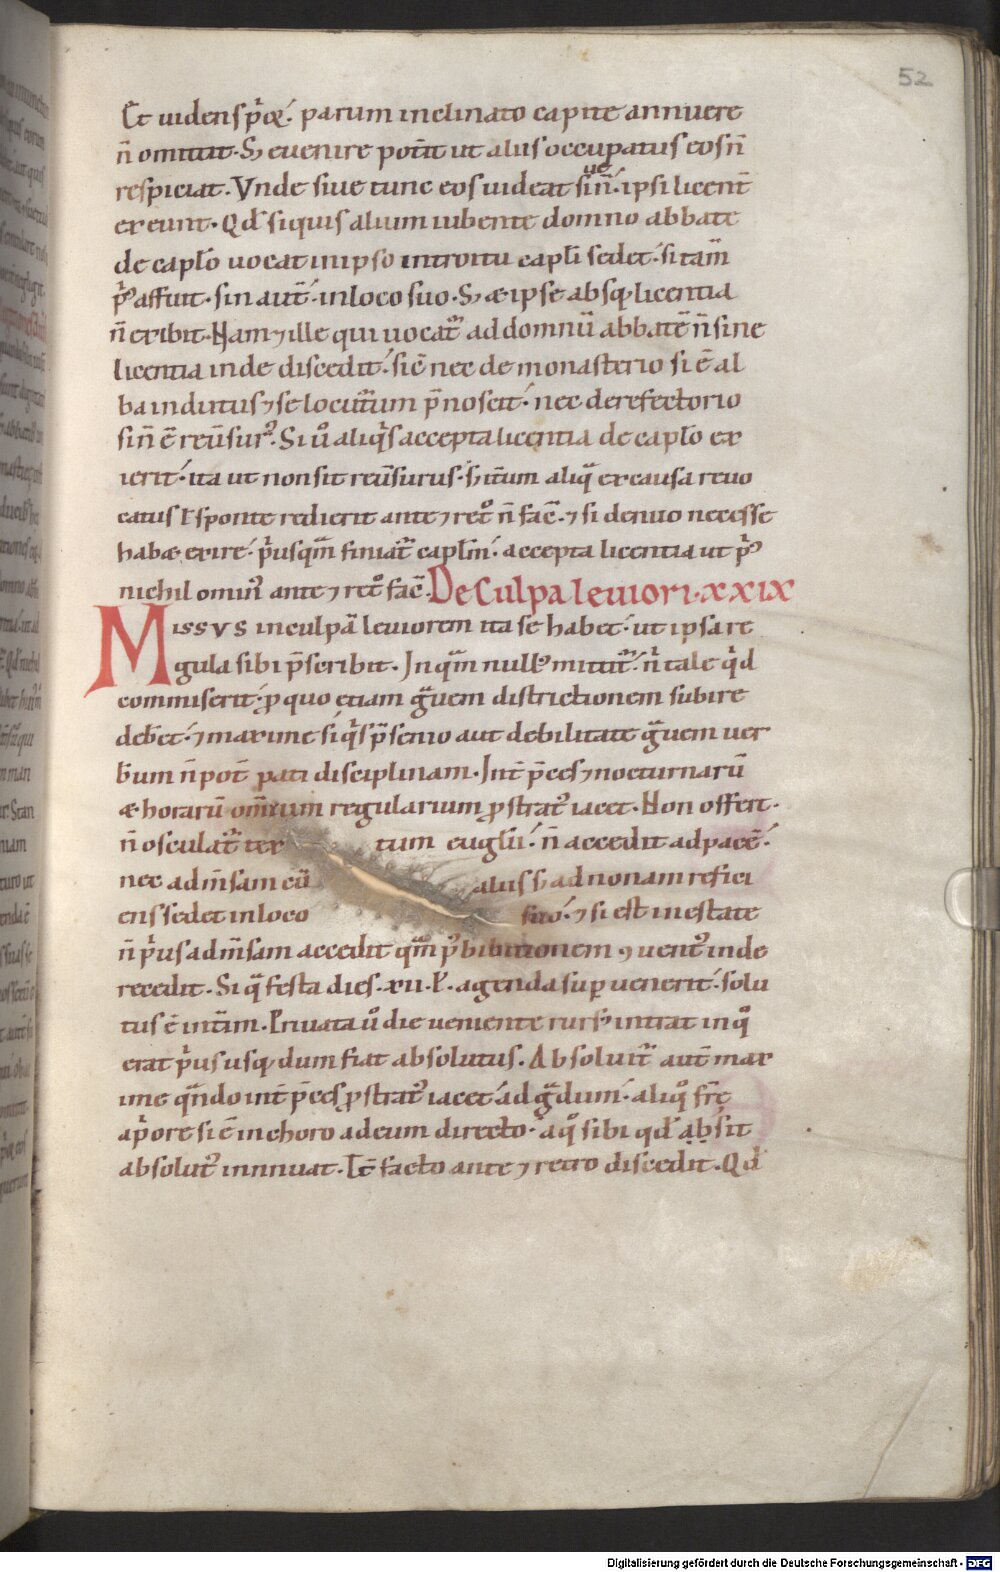 52
Et uidens p̄oꝝ. parum inclinato capite annuere
n̄ omittit. Sꝫ euenire potēt ut alius occupatus eos n̄
respiciat. Vnde siue tunc eos uideat siue n̄. ipsi licent̄
exeunt. Qd̄ siquis alium iubente domno abbate
de capło uocat inipso introitu capłi sedet. si tam̄
p̄ affuit. sin aut̄. inloco suo. Sꝫ & ipse absqꝫ licentia
n̄ exibit. Nam ⁊ ille qui uocat᷑ ad domnū abbatē n̄ sine
licentia inde discedit. sic̄ nec de monasterio si ē al
ba indutus ⁊ se locutum p̄noscit. nec derefectorio
sin̄ ē reūsur᷒. Si ů aliq̄s accepta licentia de capło ex
ierit. ita ut non sit reūsurus. sꝫ itum aliq̄ excausa reuo
catus ł sponte redierit ante ⁊ ret° n̄ fac̄. ⁊ si denuo necesse
hab& exire. p̄usqm̄ finiat᷑ caplm̄. accepta licentia ut p̄᷒
nichil omin᷒ ante ⁊ ret° fac̄. De culpa leuiori. xxix
Missvs inculpā leuiorem ita se habet. ut ipsa re
gula sibi p̄scribit. In qm̄ null᷒ mittit᷑. n̄ tale q̄d
commiserit. ꝓ quo etiam g̃uem districtionem subire
deb̄et. ⁊ maxime si q̄s p̄ senio aut debilitate g̃uem uer
b̄um n̄ pot̄ pati disciplinam. Int̄ p̄ces ⁊ nocturnarū
& horarū om̄ium regularium ꝓstrat᷒ iacet. Non offert.
n̄ osculat᷑ tex tum euglīi. n̄ accedit ad pacē.
nec ad m̄sam cū aliis sꝫ ad nonam refici
ens sedet inloco suo. ⁊ si est inestate
n̄ p̄us ad m̄sam accedit qm̄ p᷒ bibitionem ꝯuent᷒ inde
recedit. Si q̄ festa dies. xii. ł. agenda suꝑ uenerit. solu
tus ē int̄im. Priuata ů die ueniente rurs᷒ intrat in q°
erat p̄us usqꝫ dum fiat absolutus. Absoluit᷑ aut̄ max
ime qn̄do int̄ p̄ces ꝓstrat᷒ iacet ad g̃dum. aliq° fr̄e
a p̄ore si ē inchoro ad eum directo. a q° sibi qd̄ absit
absolut᷒ innnuat. Et̄ facto ante ⁊ retro discedit. Qd̄
Digitalisierung gefördert durch die Deutsche Forschungsgemeinschaft - DFG